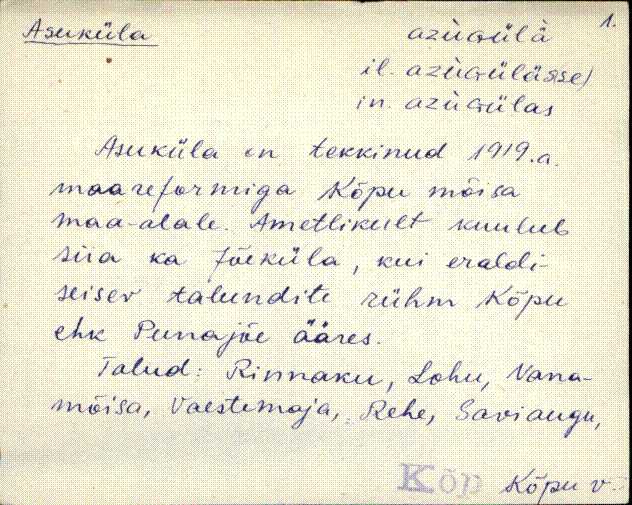 Asuküla azùGülà 1.
il. azùGülässe)
in. azùGülas
Asuküla on tekkinud 1919.a.
maareformiga Kõpu mõisa
maa-alale. Ametlikult kuulub
siia ka Jõeküla, kui eraldi-
seisev talundite rühm Kõpu
ehk Punajõe ääres.
Talud: Rinnaku, Lohu, Vana-
mõisa, Vaestemaja, Rehe, Saviaugu,
Kõp Kõpu v.